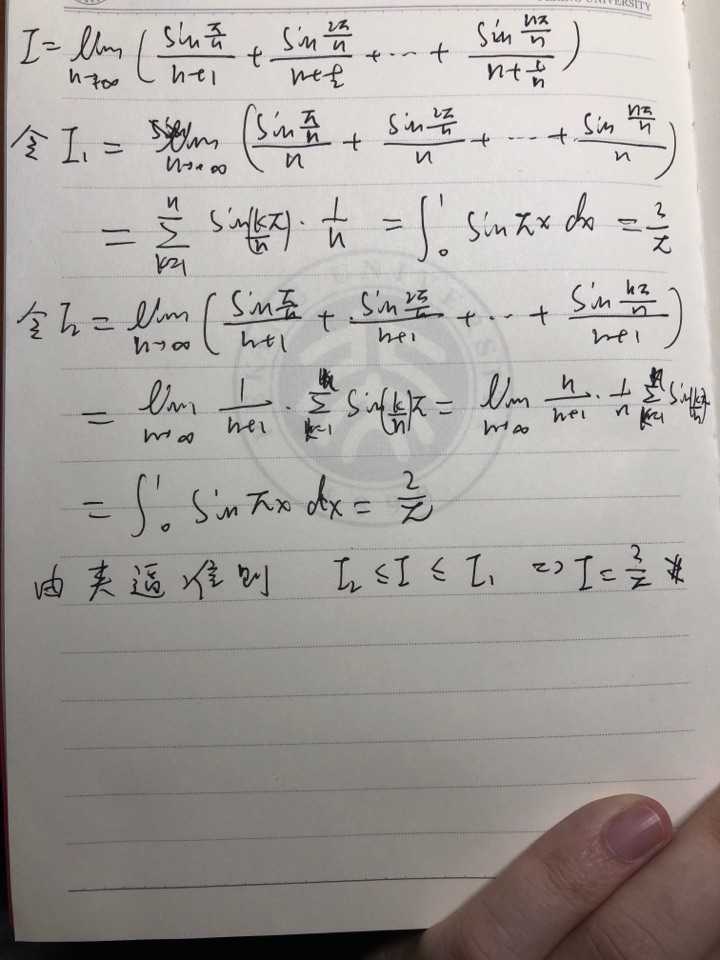 UNIVERSITY
I = lim_{n→∞} ( sin(π/n)/(n+1) + sin(2π/n)/(n+1/2) + ··· + sin(nπ/n)/(n+1/n) )
令 I₁ = lim_{n→∞} ( sin(π/n)/n + sin(2π/n)/n + ··· + sin(nπ/n)/n )
= Σ_{k=1}^{n} sin(kπ/n) · 1/n = ∫₀¹ sin πx dx = 2/π
令 I₂ = lim_{n→∞} ( sin(π/n)/(n+1) + sin(2π/n)/(n+1) + ··· + sin(nπ/n)/(n+1) )
= lim_{n→∞} 1/(n+1) · Σ_{k=1}^{n} sin(k/n)π = lim_{n→∞} n/(n+1) · 1/n Σ_{k=1}^{n} sin(kπ/n)
= ∫₀¹ sin πx dx = 2/π
由夹逼准则 I₂ ≤ I ≤ I₁ => I = 2/π #